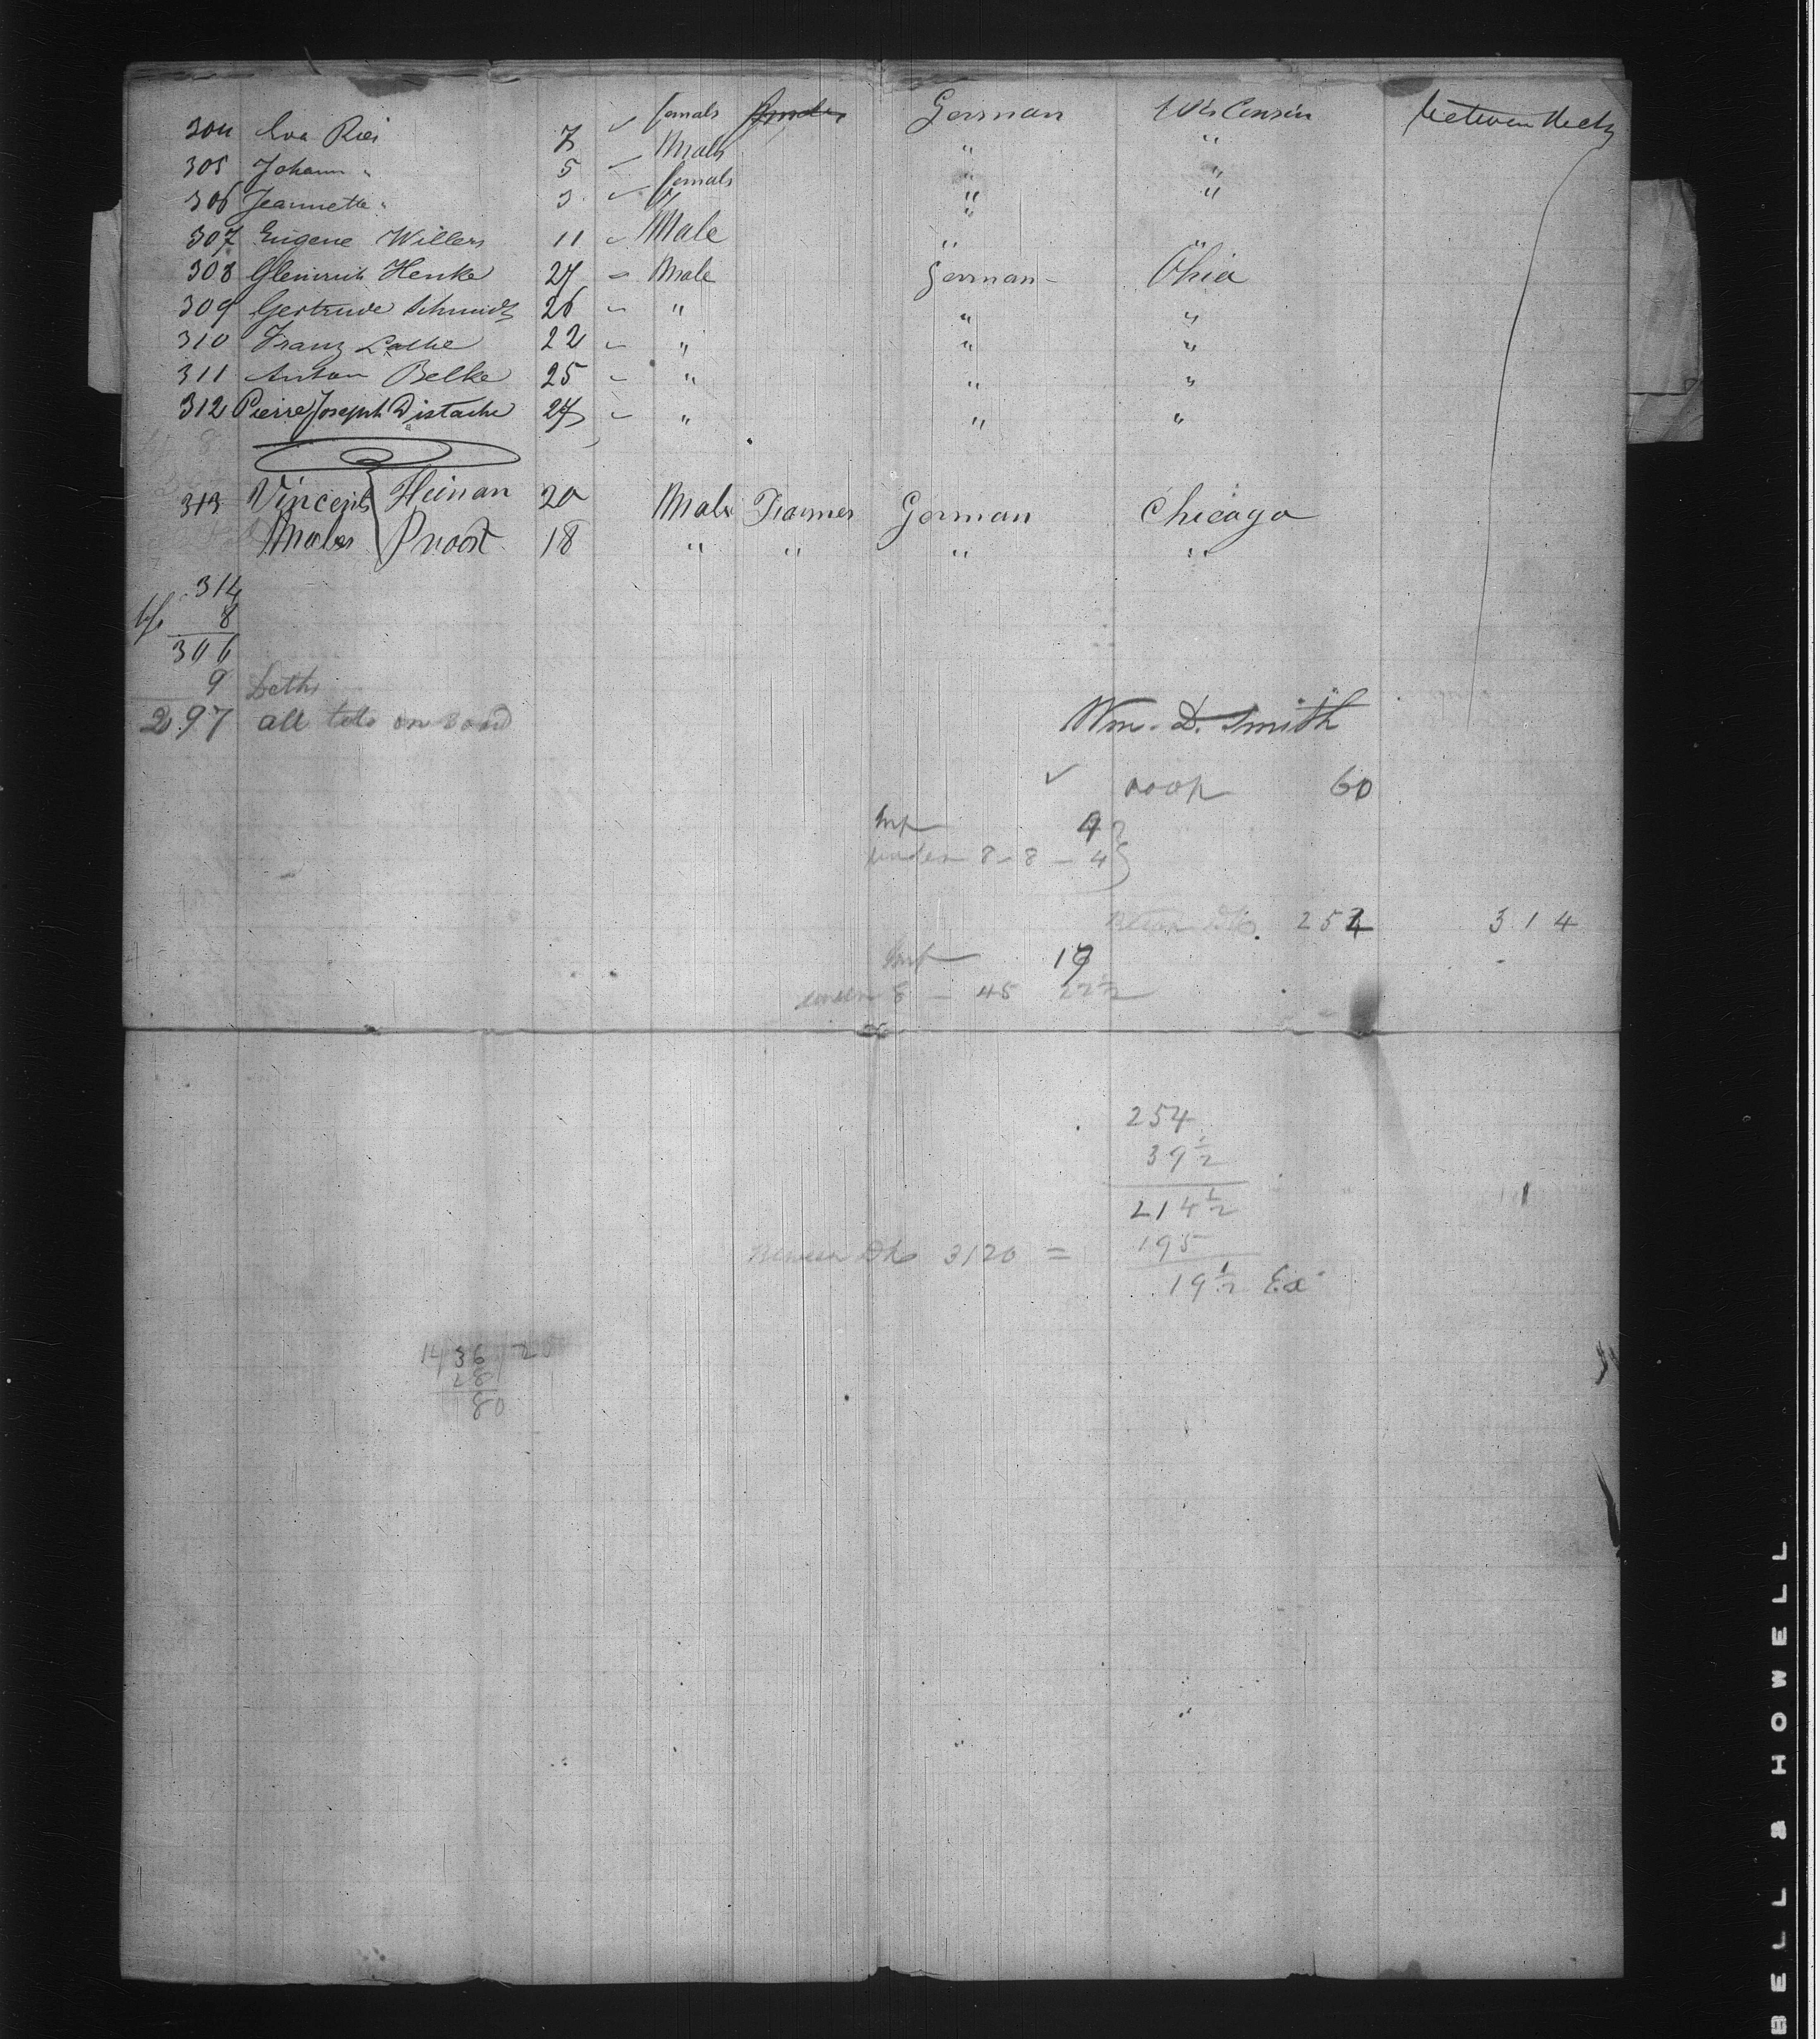 304 Eva Ries 7 ✓ female German Wis Consin between decks
305 Johann " 5 – Male " "
306 Jeannette " 3 ✓ female " "
307 Eugene Willers 11 ✓ Male " "
308 Henke 27 – Male German – Ohio
309 Gertrude Schmidt 26 – " " "
310 Franz 22 – " " "
311 Anton Belke 25 – " " "
312 Pierre Joseph Distache 27 – " " "
313 Vincent Heinan 20 Male Farmer German Chicago
18 " " " "
314
8
306
9 Deths
297 all told on Board
Wm. D. Smith
✓ 60
Inf
under 8 - 8 - 4
254 314
Inf
under 8 - 45 22½
254
39½
214½
Between Dks 3120 = 195
19½ Ex
14 36
28
80
BELL & HOWELL